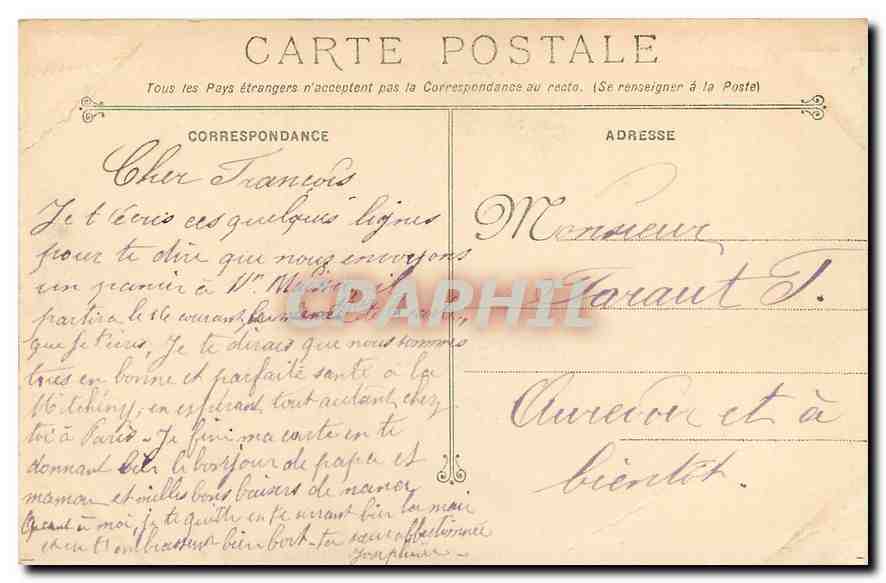 CARTE POSTALE
Tous les Pays étrangers n'acceptent pas la Correspondance au recto. (Se renseigner à la Poste)
CORRESPONDANCE
ADRESSE
Cher Francois
Je t'écris ces quelques lignes
pour te dire que nous envoyons
un panier à
partira le 16 courant,
que je t'écris, Je te dirais que nous sommes
tres en bonne et parfaite santé à la
en espérant tout autant chez
toi à Paris - Je fini ma carte en te
donnant bien le bonjour de papa et
maman et milles bons baisers de
Quant à moi, je te quitte en te serrant bien la main
et en t'embrassant bien fort - ta sœur affectionnée
Josephine -
Monsieur
Faraut F.
Aurevoir et à
bientôt.
CPAPHIL